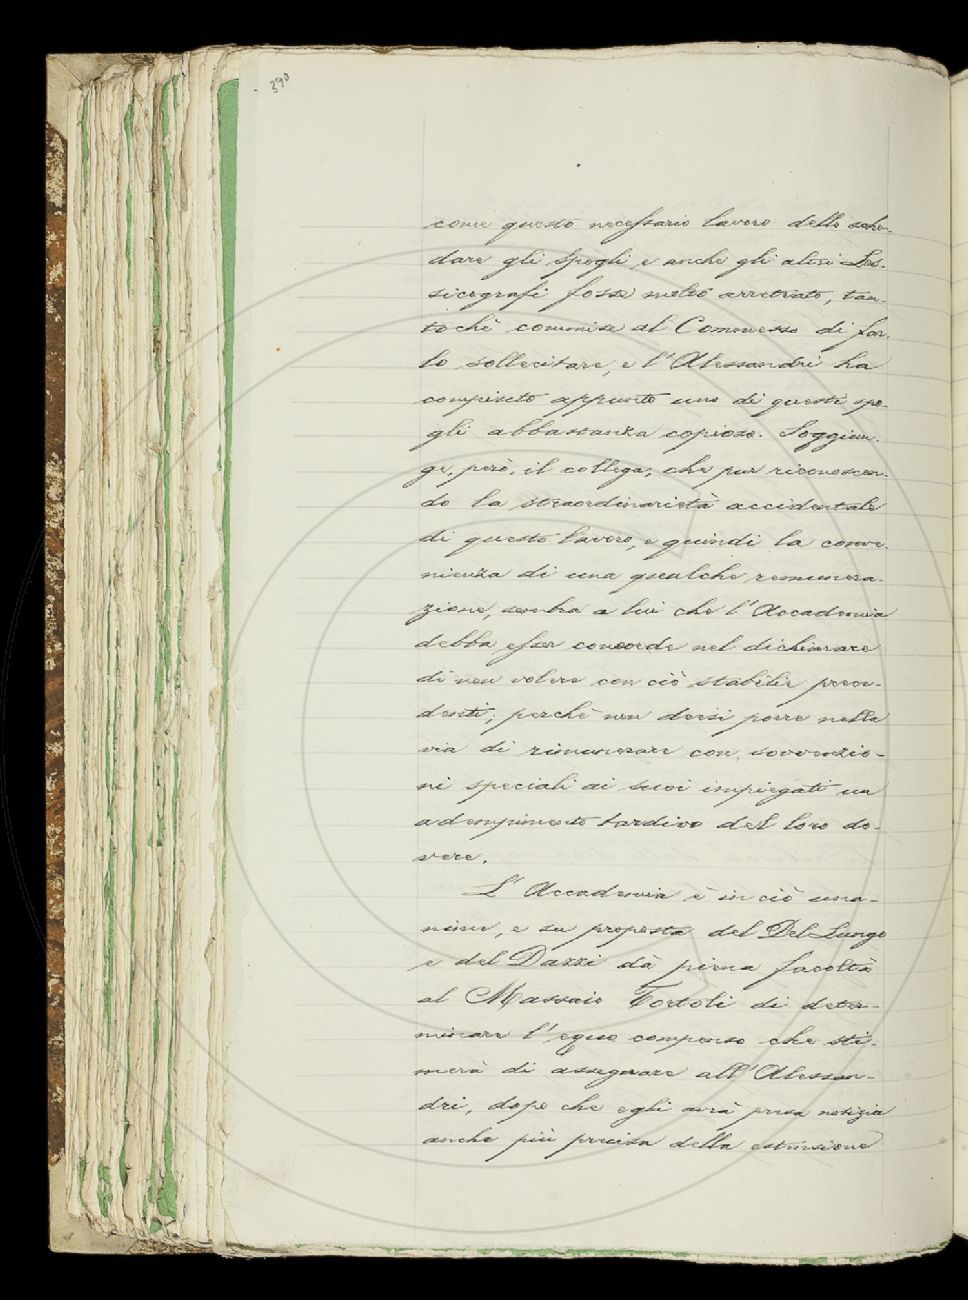 390
come questo necessario lavoro dello sche-
dare gli spogli, e anche gli altri Les-
sicografi fosse molto arretrato, tan-
tochè commise al Commesso di far-
lo sollecitare, e l'Alessandri ha
compiuto appunto uno di questi spo-
gli abbastanza copioso. Soggiun-
ge, però, il collega, che pur riconoscen-
do la straordinarietà accidentale
di questo lavoro, e quindi la conve-
nienza di una qualche remunera-
zione, sembra a lui che l'Accademia
debba esser concorde nel dichiarare
di non volere con ciò stabilir prece-
denti; perchè non deesi porre nella
via di rimunerare con sovvenzio-
ni speciali ai suoi impiegati un
adempimento tardivo del loro do-
vere.
L'Accademia è in ciò una-
nime, e su proposta del Del Lungo
e del Dazzi dà piena facoltà
al Massaio Tortoli di deter-
minare l'equo compenso che sti-
merà di assegnare all'Alessan-
dri, dopo che egli avrà presa notizia
anche più precisa della estensione